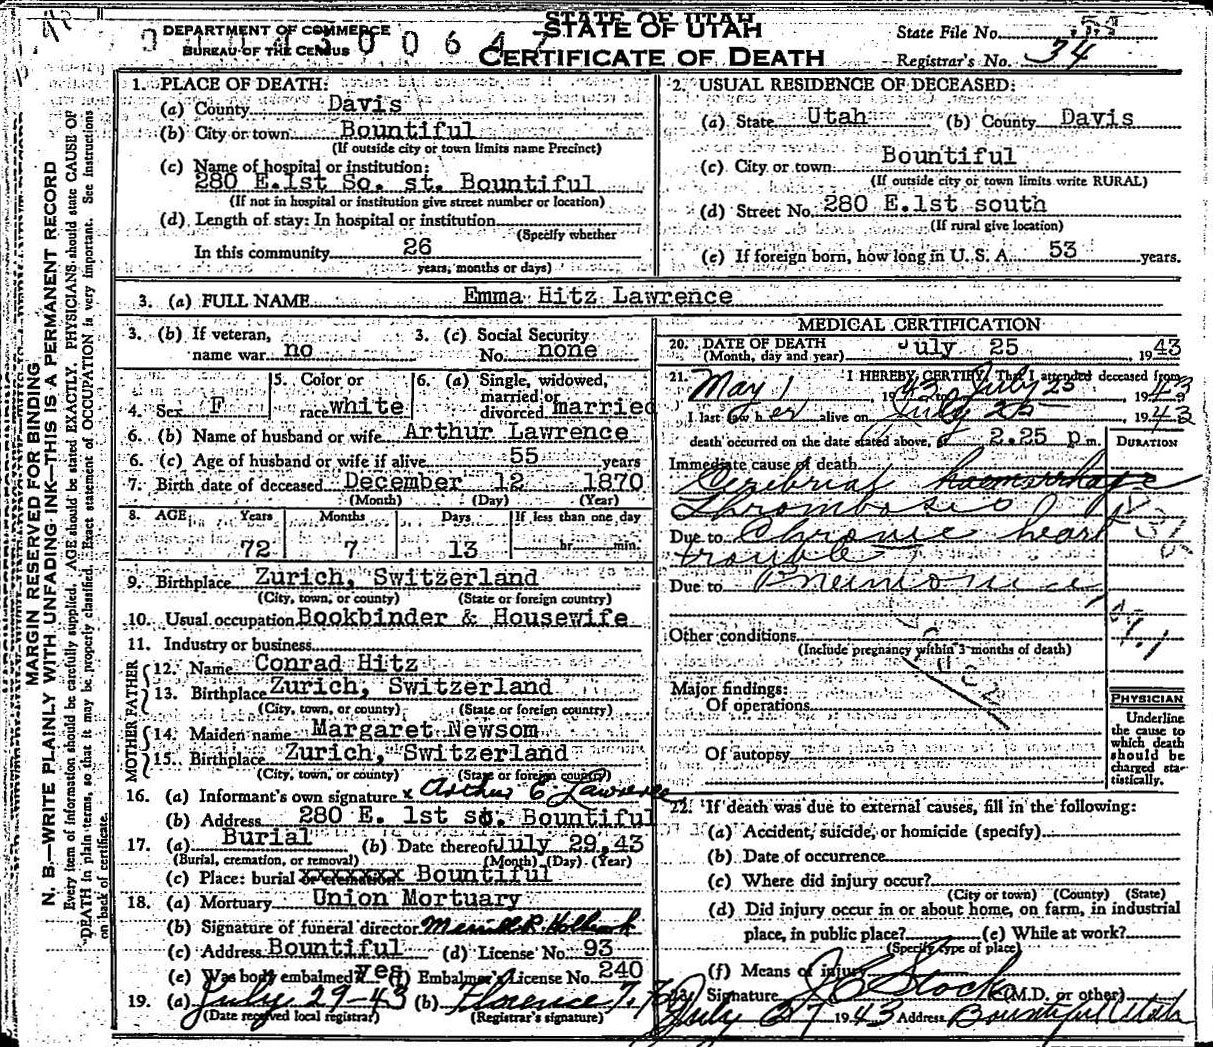 DEPARTMENT OF COMMERCE
BUREAU OF THE CENSUS
STATE OF UTAH
CERTIFICATE OF DEATH
State File No.
Registrar's No. 34
MARGIN RESERVED FOR BINDING
N. B.—WRITE PLAINLY WITH UNFADING INK—THIS IS A PERMANENT RECORD
Every item of information should be carefully supplied. AGE should be stated EXACTLY. PHYSICIANS should state CAUSE OF
DEATH in plain terms, so that it may be properly classified. Exact statement of OCCUPATION is very important. See Instructions
on back of certificate.
1. PLACE OF DEATH:
(a) County Davis
(b) City or town Bountiful
(If outside city or town limits name Precinct)
(c) Name of hospital or institution:
280 E.1st So. st. Bountiful
(If not in hospital or institution give street number or location)
(d) Length of stay: In hospital or institution
(Specify whether
In this community 26
years, months or days)
2. USUAL RESIDENCE OF DECEASED:
(a) State Utah (b) County Davis
(c) City or town Bountiful
(If outside city or town limits write RURAL)
(d) Street No. 280 E.1st south
(If rural give location)
(e) If foreign born, how long in U. S. A. 53 years.
3. (a) FULL NAME Emma Hitz Lawrence
3. (b) If veteran, name war no
3. (c) Social Security No. none
4. Sex F
5. Color or race white
6. (a) Single, widowed, married or divorced married
6. (b) Name of husband or wife Arthur Lawrence
6. (c) Age of husband or wife if alive 55 years
7. Birth date of deceased December 12 1870
(Month) (Day) (Year)
8. AGE Years Months Days If less than one day
72 7 13 hr. min.
9. Birthplace Zurich, Switzerland
(City, town, or county) (State or foreign country)
10. Usual occupation Bookbinder & Housewife
11. Industry or business
FATHER
12. Name Conrad Hitz
13. Birthplace Zurich, Switzerland
(City, town, or county) (State or foreign country)
MOTHER
14. Maiden name Margaret Newsom
15. Birthplace Zurich, Switzerland
(City, town, or county) (State or foreign country)
16. (a) Informant's own signature x Arthur E Lawrence
(b) Address 280 E. 1st so. Bountiful
17. (a) Burial (b) Date thereof July 29,43
(Burial, cremation, or removal) (Month) (Day) (Year)
(c) Place: burial or cremation Bountiful
18. (a) Mortuary Union Mortuary
(b) Signature of funeral director Merrill R. Holbrook
(c) Address Bountiful (d) License No. 93
(e) Was body embalmed? yes (f) Embalmer's License No. 240
19. (a) July 29-43 (b) Florence T.
(Date received local registrar) (Registrar's signature)
MEDICAL CERTIFICATION
20. DATE OF DEATH
(Month, day and year) July 25, 1943
21. I HEREBY CERTIFY, That I attended deceased from
May 1, 1943 to July 25 1943
I last saw her alive on July 25 1943
death occurred on the date stated above, at 2.25 p m.
DURATION
Immediate cause of death
Cerebrial haemorrhage
Thrombosis
Due to Chronic heart
trouble
Due to Pneumonia
Other conditions
(Include pregnancy within 3 months of death)
Major findings:
Of operations
Of autopsy
PHYSICIAN
Underline
the cause to
which death
should be
charged sta-
tistically.
22. If death was due to external causes, fill in the following:
(a) Accident, suicide, or homicide (specify)
(b) Date of occurrence
(c) Where did injury occur?
(City or town) (County) (State)
(d) Did injury occur in or about home, on farm, in industrial
place, in public place? (e) While at work?
(Specify type of place)
(f) Means of injury
23. Signature J C Stocks (M.D. or other)
July 27 1943 Address Bountiful Utah